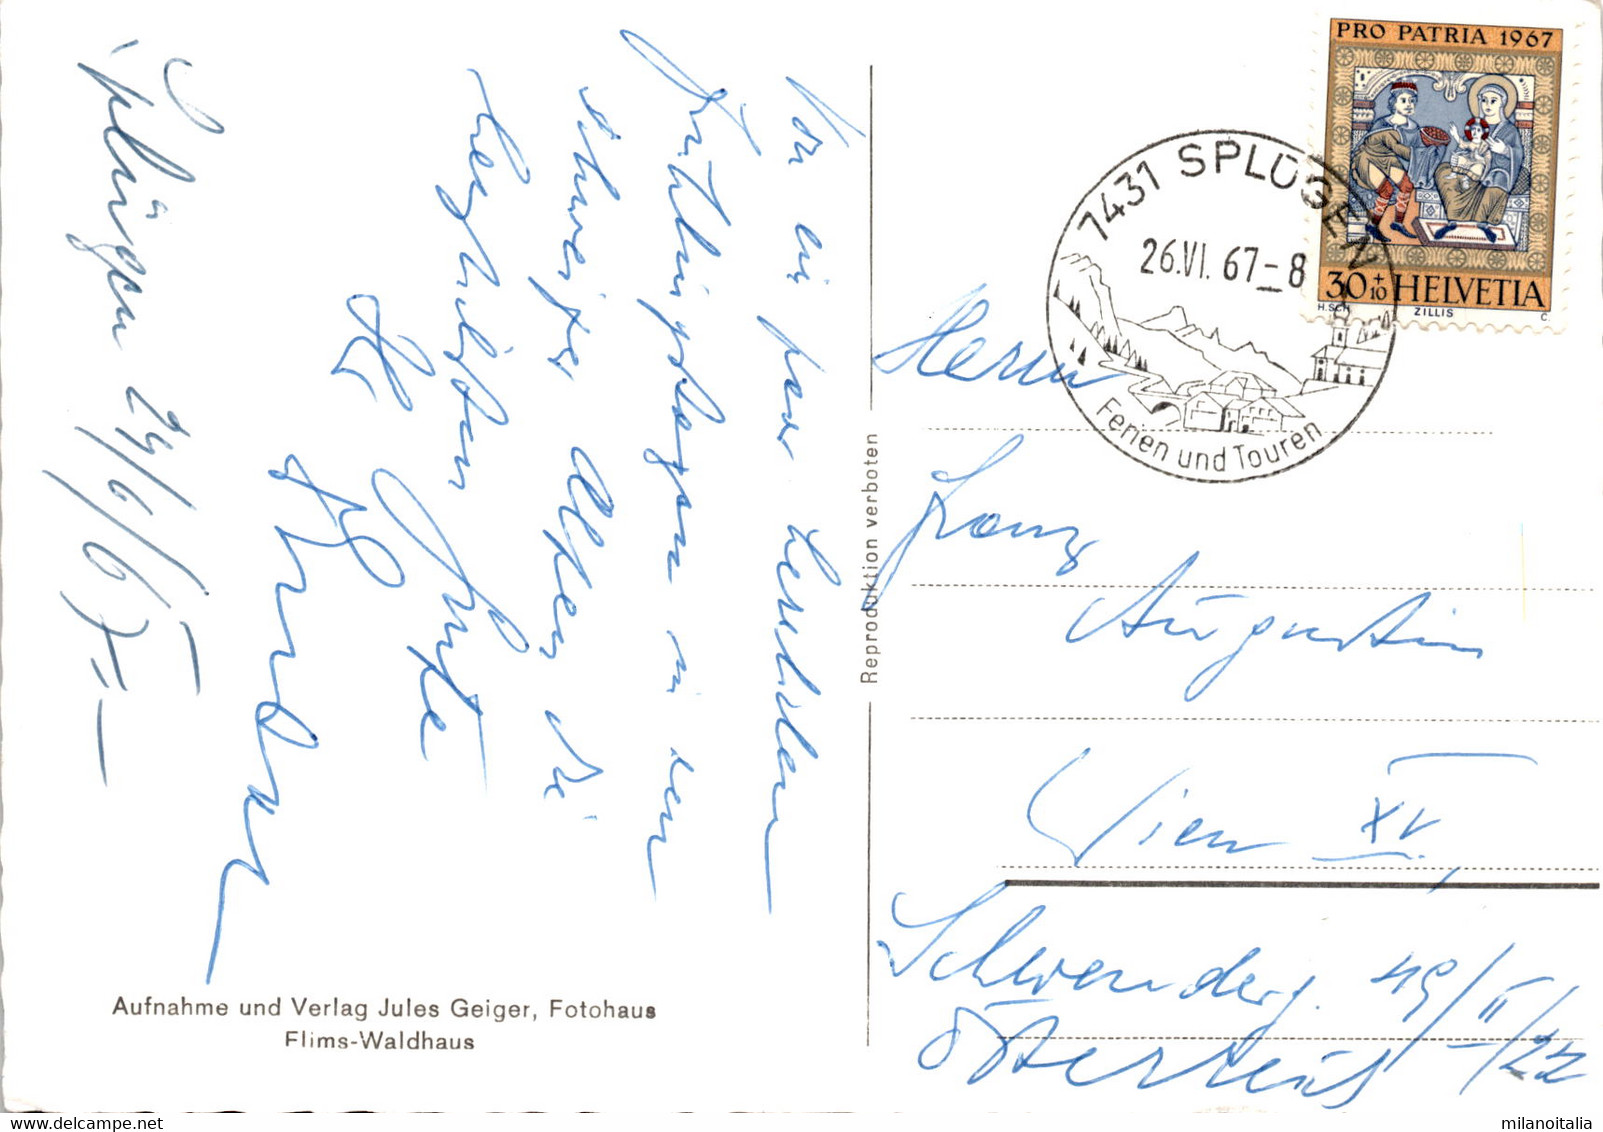 Splügen 24/6/67.–
Von ein paar herrlichen
Frühlingstagen in den
Schweizer Alpen die
herzlichsten
Grüße
Aufnahme und Verlag Jules Geiger, Fotohaus
Flims-Waldhaus
Reproduktion verboten
PRO PATRIA 1967
30+10 HELVETIA
H.SCH. ZILLIS C.
7431 SPLÜGEN
26.VI. 67–8
Ferien und Touren
Herrn
Franz
Augustin
Wien XV.
Schwenderg. 49/II/22
Österreich
milanoitalia